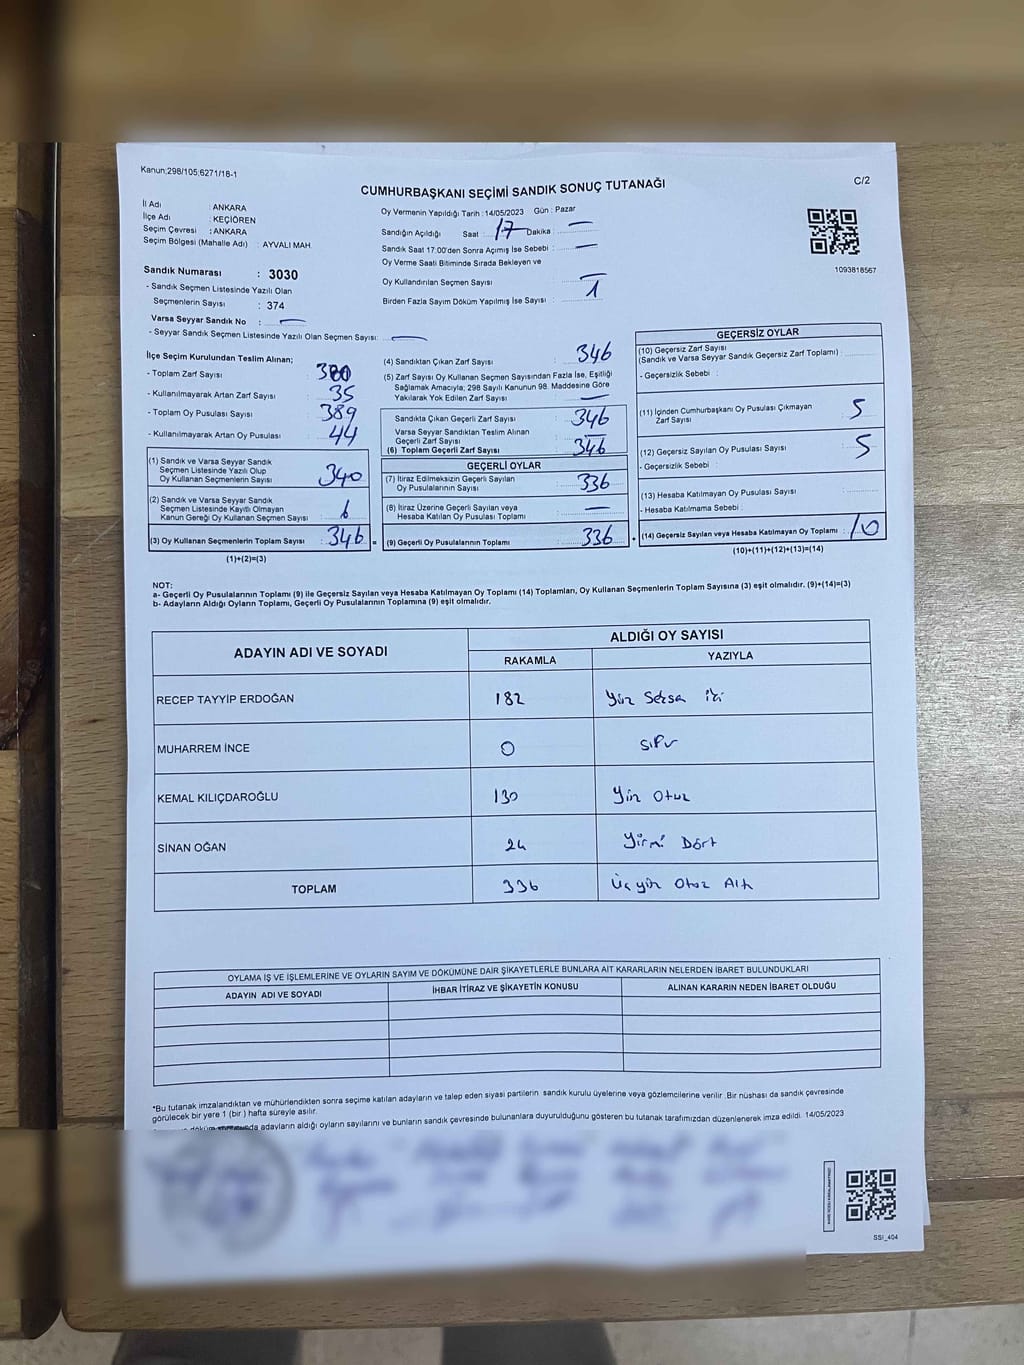 Kanun;298/105;6271/18-1
C/2
CUMHURBAŞKANI SEÇİMİ SANDIK SONUÇ TUTANAĞI
İl Adı : ANKARA
İlçe Adı : KEÇİÖREN
Seçim Çevresi : ANKARA
Seçim Bölgesi (Mahalle Adı) : AYVALI MAH.
Sandık Numarası : 3030
- Sandık Seçmen Listesinde Yazılı Olan
Seçmenlerin Sayısı : 374
Varsa Seyyar Sandık No : —
- Seyyar Sandık Seçmen Listesinde Yazılı Olan Seçmen Sayısı: —
Oy Vermenin Yapıldığı Tarih : 14/05/2023 Gün : Pazar
Sandığın Açıldığı Saat : 17 Dakika : —
Sandık Saat 17:00'den Sonra Açmış İse Sebebi : —
Oy Verme Saati Bitiminde Sırada Bekleyen ve
Oy Kullandırılan Seçmen Sayısı : —
Birden Fazla Sayım Döküm Yapılmış İse Sayısı : 1
1093818567
İlçe Seçim Kurulundan Teslim Alınan;
- Toplam Zarf Sayısı : 380
- Kullanılmayarak Artan Zarf Sayısı : 35
- Toplam Oy Pusulası Sayısı : 389
- Kullanılmayarak Artan Oy Pusulası : 44
(1) Sandık ve Varsa Seyyar Sandık
Seçmen Listesinde Yazılı Olup
Oy Kullanan Seçmenlerin Sayısı : 340
(2) Sandık ve Varsa Seyyar Sandık
Seçmen Listesinde Kayıtlı Olmayan
Kanun Gereği Oy Kullanan Seçmen Sayısı : 6
(3) Oy Kullanan Seçmenlerin Toplam Sayısı : 346 =
(1)+(2)=(3)
(4) Sandıktan Çıkan Zarf Sayısı : 346
(5) Zarf Sayısı Oy Kullanan Seçmen Sayısından Fazla İse, Eşitliği
Sağlamak Amacıyla; 298 Sayılı Kanunun 98. Maddesine Göre
Yakılarak Yok Edilen Zarf Sayısı : —
Sandıkta Çıkan Geçerli Zarf Sayısı : 346
Varsa Seyyar Sandıktan Teslim Alınan
Geçerli Zarf Sayısı : —
(6) Toplam Geçerli Zarf Sayısı : 346
GEÇERLİ OYLAR
(7) İtiraz Edilmeksizin Geçerli Sayılan
Oy Pusulalarının Sayısı : 336
(8) İtiraz Üzerine Geçerli Sayılan veya
Hesaba Katılan Oy Pusulası Toplamı : —
(9) Geçerli Oy Pusulalarının Toplamı : 336 +
GEÇERSİZ OYLAR
(10) Geçersiz Zarf Sayısı
(Sandık ve Varsa Seyyar Sandık Geçersiz Zarf Toplamı) :
- Geçersizlik Sebebi :
(11) İçinden Cumhurbaşkanı Oy Pusulası Çıkmayan
Zarf Sayısı : 5
(12) Geçersiz Sayılan Oy Pusulası Sayısı : 5
- Geçersizlik Sebebi :
(13) Hesaba Katılmayan Oy Pusulası Sayısı :
- Hesaba Katılmama Sebebi :
(14) Geçersiz Sayılan veya Hesaba Katılmayan Oy Toplamı : 10
(10)+(11)+(12)+(13)=(14)
NOT:
a- Geçerli Oy Pusulalarının Toplamı (9) ile Geçersiz Sayılan veya Hesaba Katılmayan Oy Toplamı (14) Toplamları, Oy Kullanan Seçmenlerin Toplam Sayısına (3) eşit olmalıdır. (9)+(14)=(3)
b- Adayların Aldığı Oyların Toplamı, Geçerli Oy Pusulalarının Toplamına (9) eşit olmalıdır.
ADAYIN ADI VE SOYADI
ALDIĞI OY SAYISI
RAKAMLA YAZIYLA
RECEP TAYYİP ERDOĞAN 182 Yüz Seksa iki
MUHARREM İNCE 0 Sıfır
KEMAL KILIÇDAROĞLU 130 Yüz Otuz
SİNAN OĞAN 24 Yirmi Dört
TOPLAM 336 Üçyüz Otuz Altı
OYLAMA İŞ VE İŞLEMLERİNE VE OYLARIN SAYIM VE DÖKÜMÜNE DAİR ŞİKAYETLERLE BUNLARA AİT KARARLARIN NELERDEN İBARET BULUNDUKLARI
ADAYIN ADI VE SOYADI İHBAR İTİRAZ VE ŞİKAYETİN KONUSU ALINAN KARARIN NEDEN İBARET OLDUĞU
*Bu tutanak imzalandıktan ve mühürlendikten sonra seçime katılan adayların ve talep eden siyasi partilerin sandık kurulu üyelerine veya gözlemcilerine verilir .Bir nüshası da sandık çevresinde
görülecek bir yere 1 (bir ) hafta süreyle asılır.
adayların aldığı oyların sayılarını ve bunların sandık çevresinde bulunanlara duyurulduğunu gösteren bu tutanak tarafımızdan düzenlenerek imza edildi. 14/05/2023
SSI_404